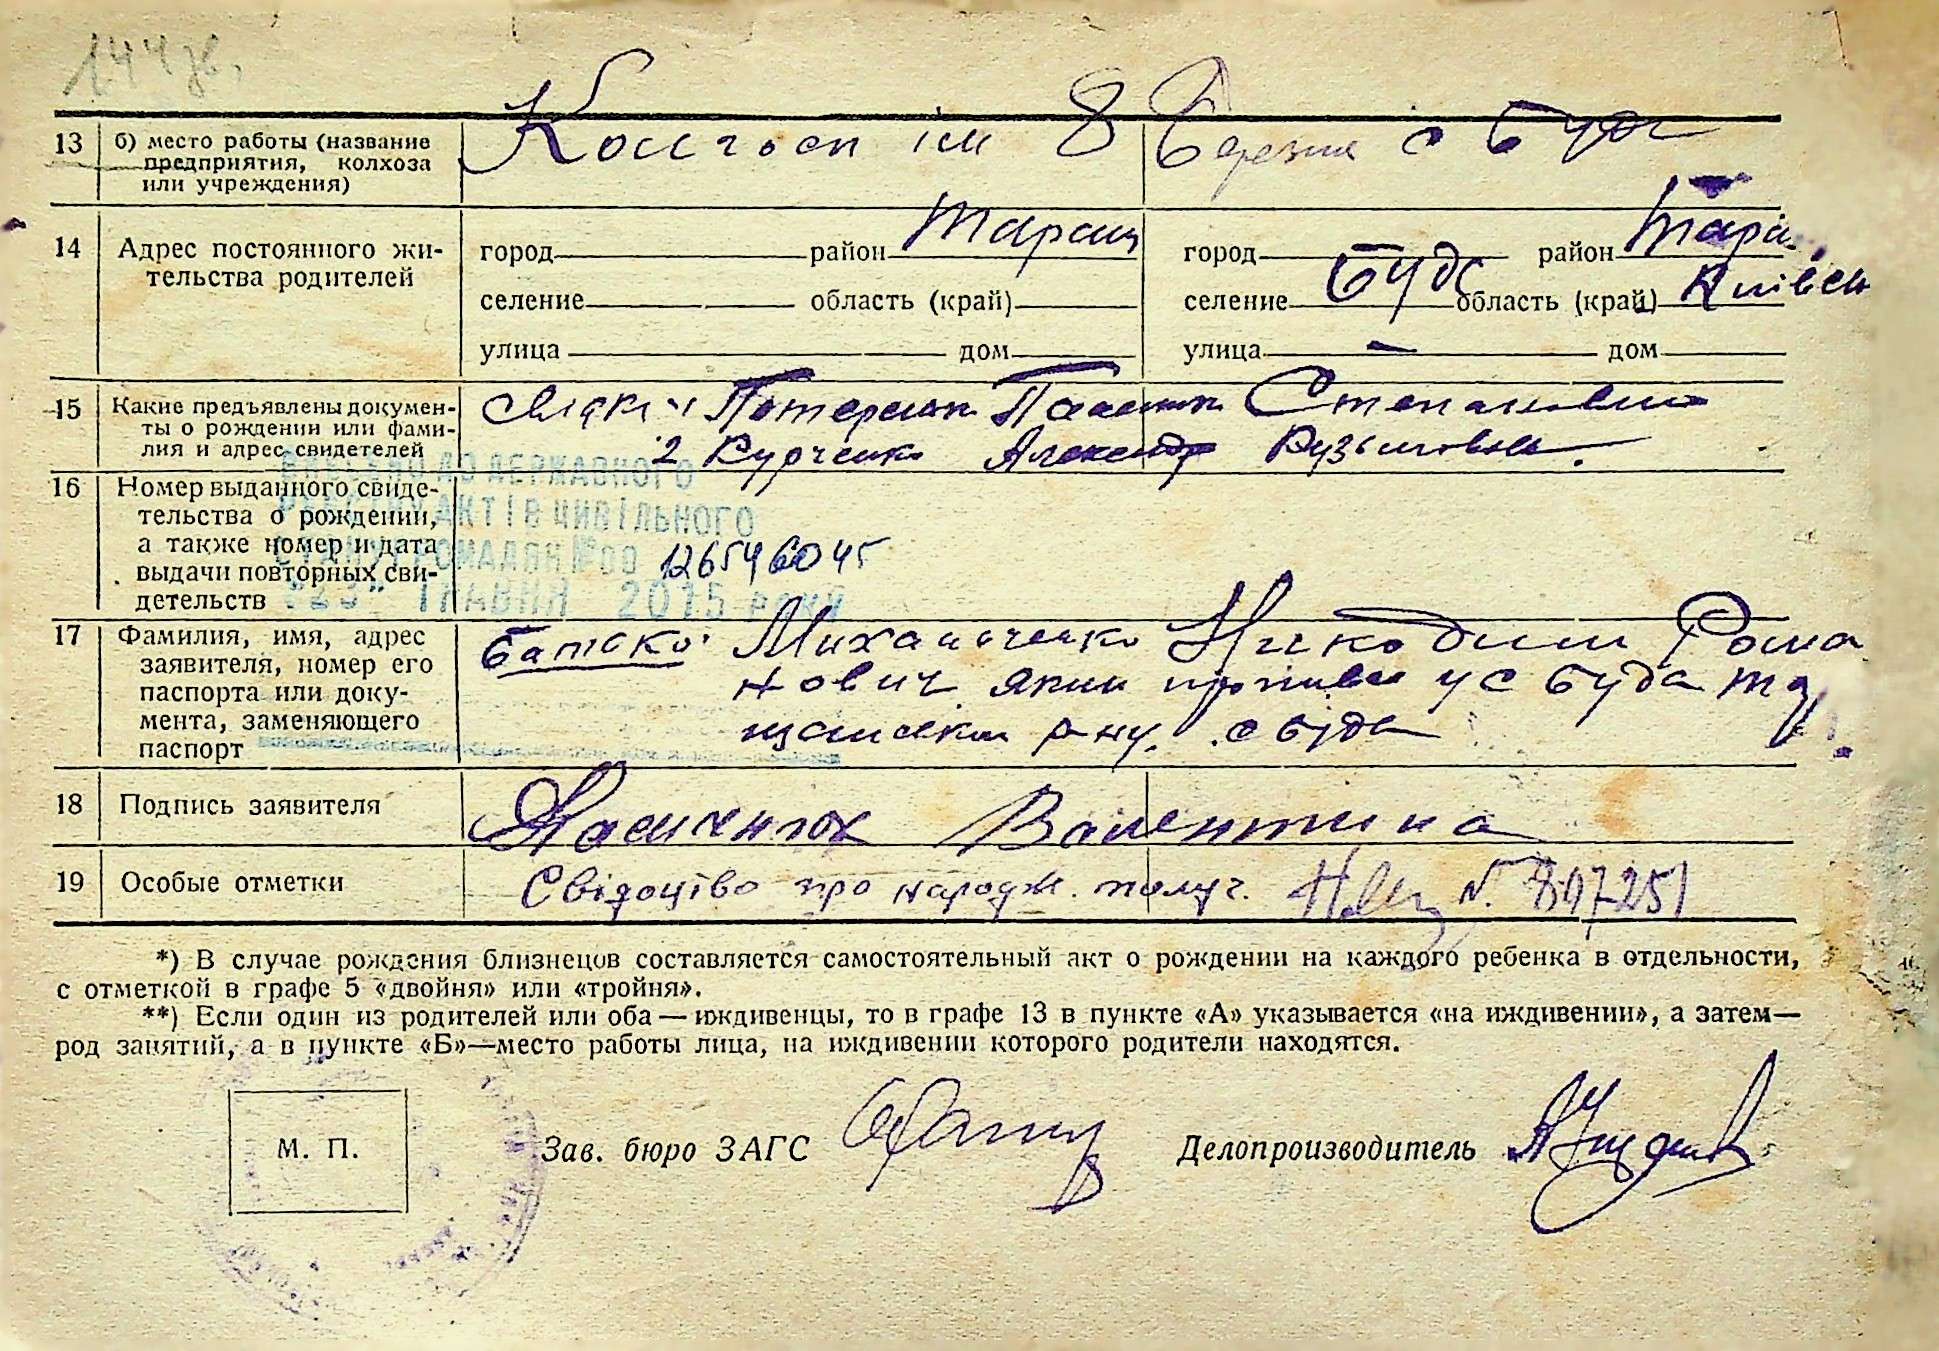 144 зв.
13 б) место работы (название предприятия, колхоза или учреждения) Колгосп ім 8 Березня с Буда
14 Адрес постоянного жи-
тельства родителей
город район Таращ город район Тара
селение область (край) селение Буда область (край) Київск
улица дом улица — дом
15 Какие предъявлены докумен-
ты о рождении или фами-
лия и адрес свидетелей
Степановна
2 Курченко Александр Кузьмовна.
16 Номер выданного свиде-
тельства о рождении,
а также номер и дата
выдачи повторных сви-
детельств
ВНЕСЕНО ДО ДЕРЖАВНОГО
РЕЄСТРУ АКТІВ ЦИВІЛЬНОГО
СТАНУ ГРОМАДЯН №00 126546045
"23" ТРАВНЯ 2015 року
17 Фамилия, имя, адрес
заявителя, номер его
паспорта или доку-
мента, заменяющего
паспорт
батько: Никодим Рома
нович який прожива у с Буда
р-ну. с Буда
18 Подпись заявителя Валентина
19 Особые отметки Свідоцтво про народж. получ. № 847251
*) В случае рождения близнецов составляется самостоятельный акт о рождении на каждого ребенка в отдельности,
с отметкой в графе 5 «двойня» или «тройня».
**) Если один из родителей или оба — иждивенцы, то в графе 13 в пункте «А» указывается «на иждивении», а затем—
род занятий, а в пункте «Б»—место работы лица, на иждивении которого родители находятся.
М. П. Зав. бюро ЗАГС Делопроизводитель